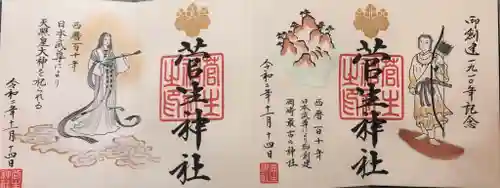 西暦一百十年
日本武尊により
天照皇大神を祀られる
令和二年十一月十四日
菅生神社
菅生
神社
御創建一九一〇年記念
菅生神社
西暦一百十年
日本武尊により御創建
岡崎最古の神社
令和二年十一月十四日